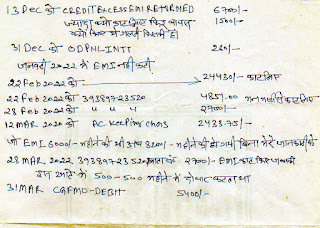 13 Dec को CREDIT EXCESS EMI RETURNED 6700/-
ज्यादा क्यों काट लिए फिर वापस 1500/-
क्यों किए ये गलती किसकी है।
31 Dec को ODPNL INTT 260/-
जनवरी 2022 में EMI नहीं करी
22 Feb 2022 को 24430/- काट लिए
22 Feb 2022 को 393897-23520 4851.00 काट लिए
28 Feb 2022 को " " " 2700/-
12 MAR 2020 को AC Keeping Chars 2433.75/-
जो EMI 6000/- महीने की थी अब 3200/- महीने की हो गयी बिना मेरे जानकारी के
28 MAR 2022 393897-23520 2700/- EMI काट लिए
इस खाते में 500-500 महीने में दो बार कटता था
31 MAR CAEMO-DEBIT 5400/-